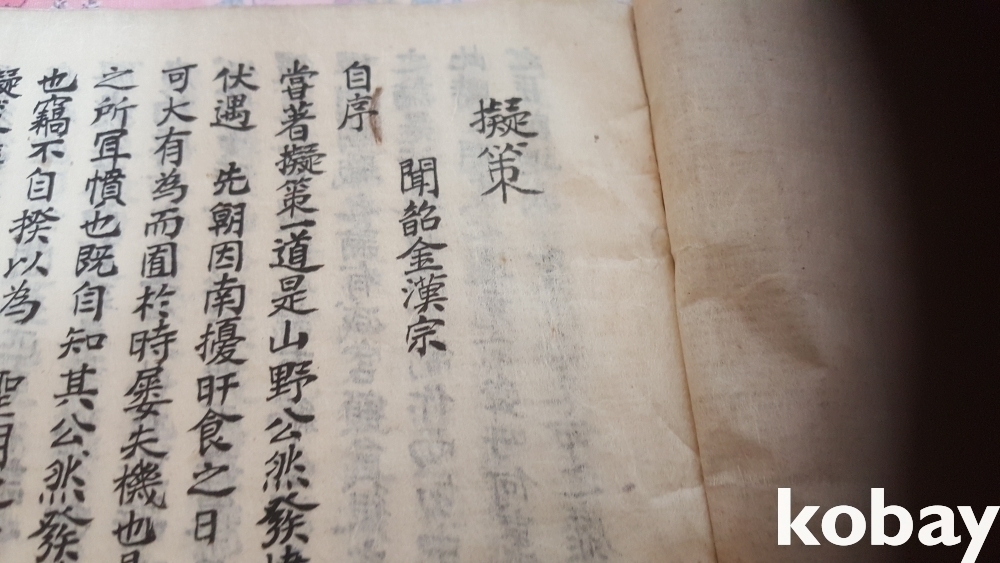 擬策
聞韶金漢宗
自序
嘗著擬策一道是山野公然發
伏遇 先朝因南擾旰食之日
可大有為而囿於時屡夫機也
之所冝憤也既自知其公然發
也竊不自揆以為 聖明
kobay